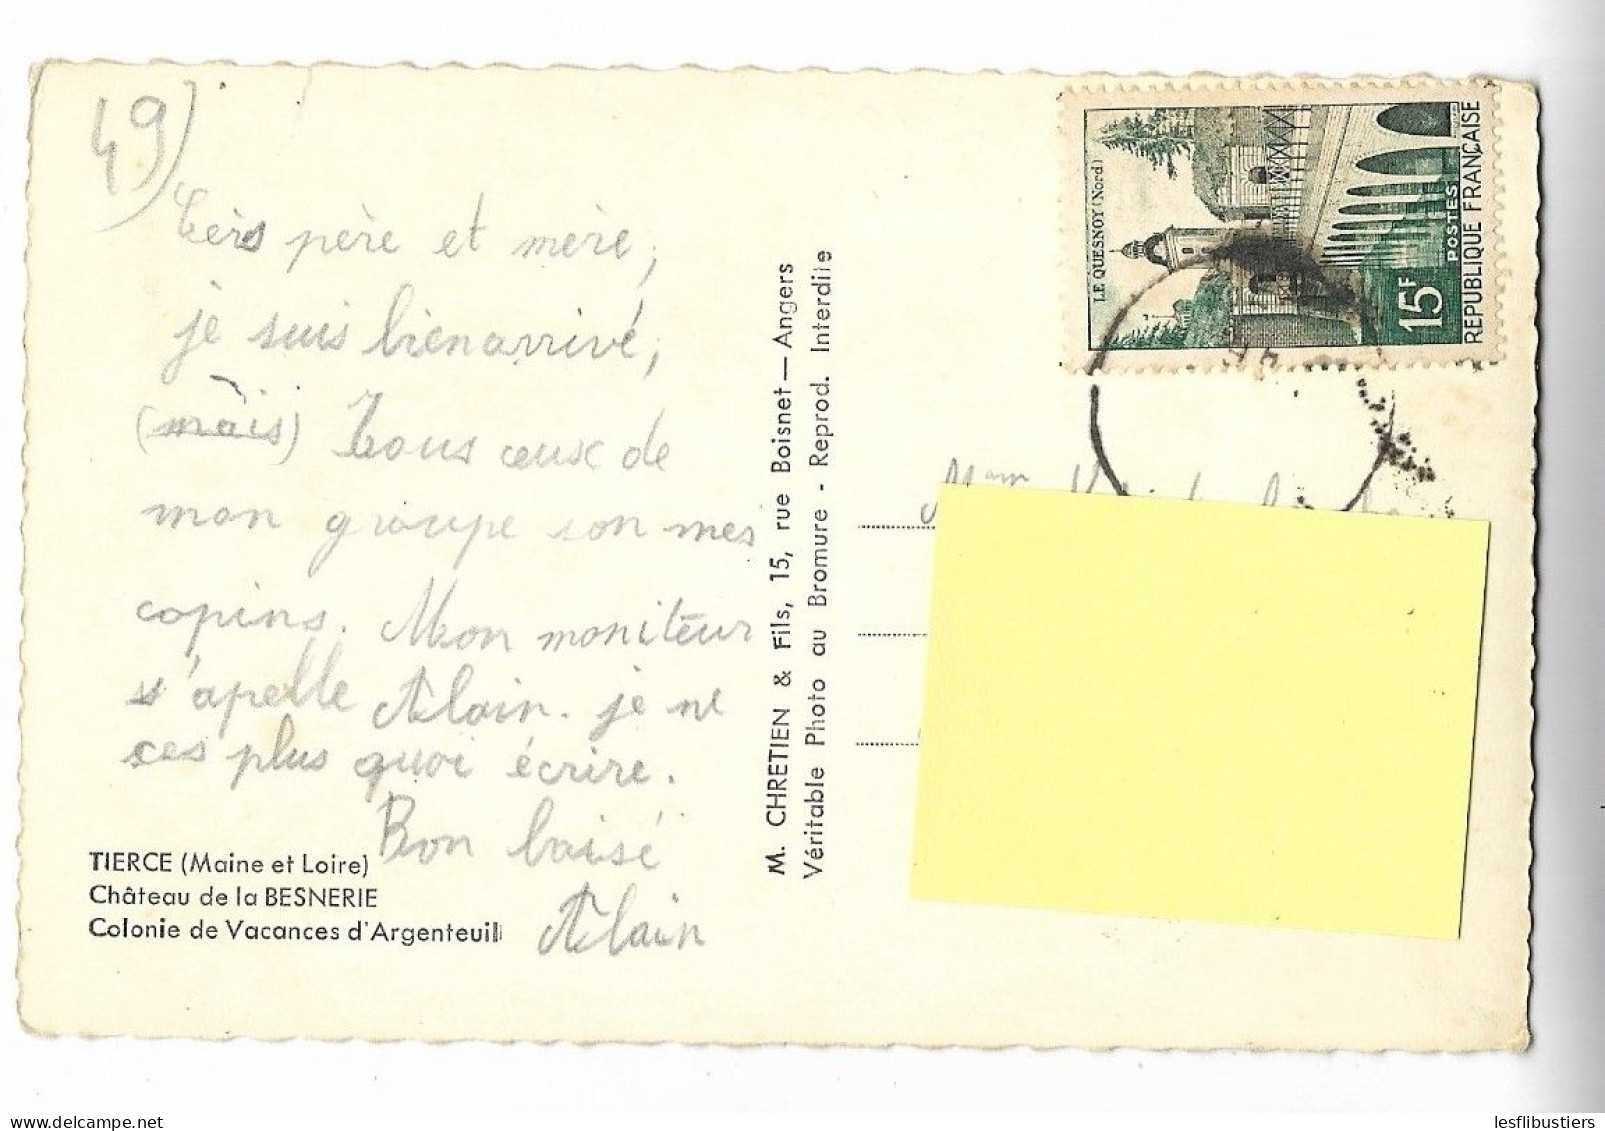 49)
Cèrs père et mère,
je suis bien arrivé,
(mais) Tous ceux de
mon groupe son mes
copins. Mon moniteur
s'apelle Alain. je ne
ces plus quoi écrire.
Bon baisé
Alain
TIERCE (Maine et Loire)
Château de la BESNERIE
Colonie de Vacances d'Argenteuil
M. CHRETIEN & Fils, 15, rue Boisnet — Angers
Véritable Photo au Bromure - Reprod. Interdite
LE QUESNOY (Nord)
15F
POSTES
REPUBLIQUE FRANÇAISE
Mam
lesflibustiers